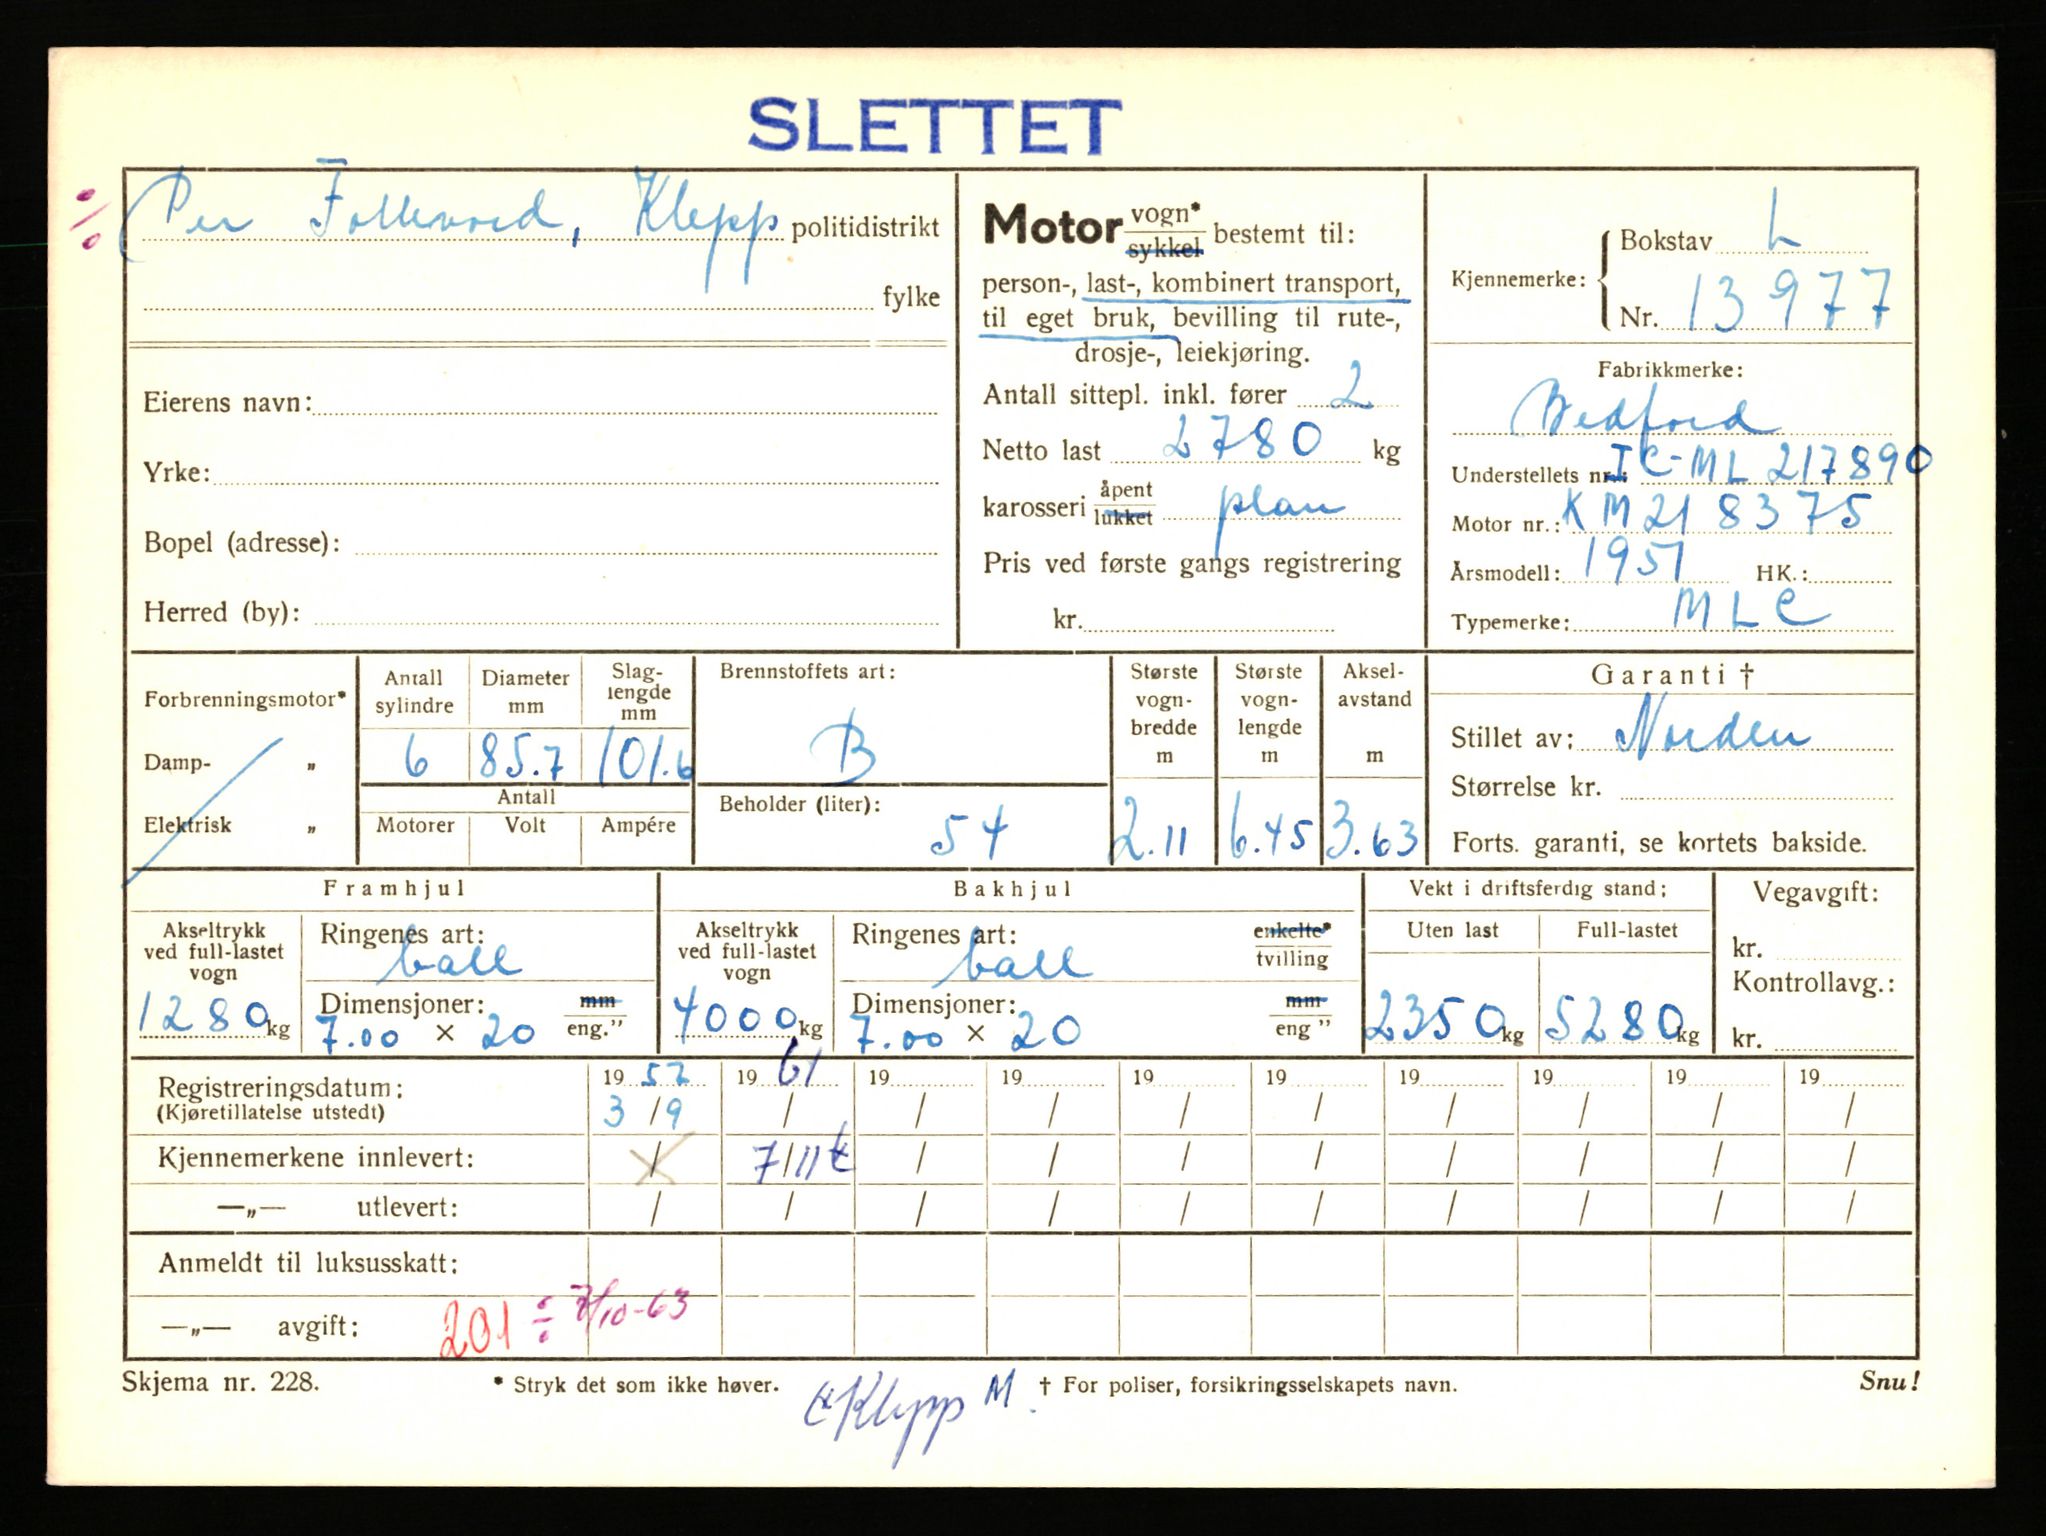 SLETTET
Per Follevord, Klepp politidistrikt
fylke
Eierens navn:
Yrke:
Bopel (adresse):
Herred (by):
Motor vogn*
sykkel bestemt til:
person-, last-, kombinert transport,
til eget bruk, bevilling til rute-,
drosje-, leiekjøring.
Antall sittepl. inkl. fører 2
Netto last 2780 kg
karosseri åpent
lukket plan
Pris ved første gangs registrering
kr.
Kjennemerke: Bokstav L
Nr. 13977
Fabrikkmerke:
Bedford
Understellets nr.: IC-ML 217890
Motor nr.: KM218375
Årsmodell: 1951 HK.:
Typemerke: MLC
Forbrenningsmotor*
Damp- „
Elektrisk „
Antall sylindre Diameter mm Slaglengde mm
6 85.7 101.6
Antall
Motorer Volt Ampére
Brennstoffets art:
B
Beholder (liter):
54
Største vogn-bredde m
2.11
Største vogn-lengde m
6.45
Aksel-avstand m
3.63
Garanti †
Stillet av: Norden
Størrelse kr.
Forts. garanti, se kortets bakside.
Framhjul
Akseltrykk
ved full-lastet
vogn
1280 kg
Ringenes art:
ball
Dimensjoner: mm
7.00 × 20 eng.”
Bakhjul
Akseltrykk
ved full-lastet
vogn
4000 kg
Ringenes art: enkelte*
ball tvilling
Dimensjoner: mm
7.00 × 20 eng ”
Vekt i driftsferdig stand:
Uten last Full-lastet
2350 kg 5280 kg
Vegavgift:
kr.
Kontrollavg.:
kr.
Registreringsdatum: 19 57 19 61 19 19 19 19 19 19 19 19
(Kjøretillatelse utstedt) 3/9 / / / / / / / / /
Kjennemerkene innlevert: / 7/11 / / / / / / / /
—„— utlevert: / / / / / / / / / /
Anmeldt til luksusskatt:
—„— avgift: 201 7/10-63
Skjema nr. 228. * Stryk det som ikke høver. † For poliser, forsikringsselskapets navn. Snu!
Klepp M.